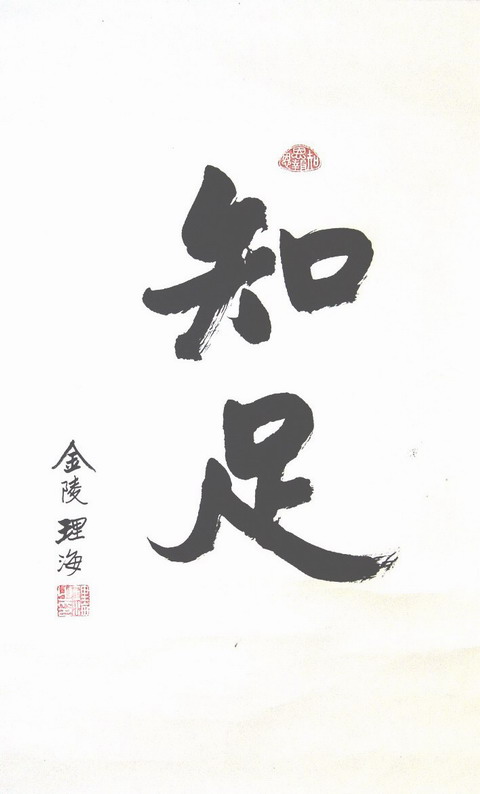 知足
金陵理海